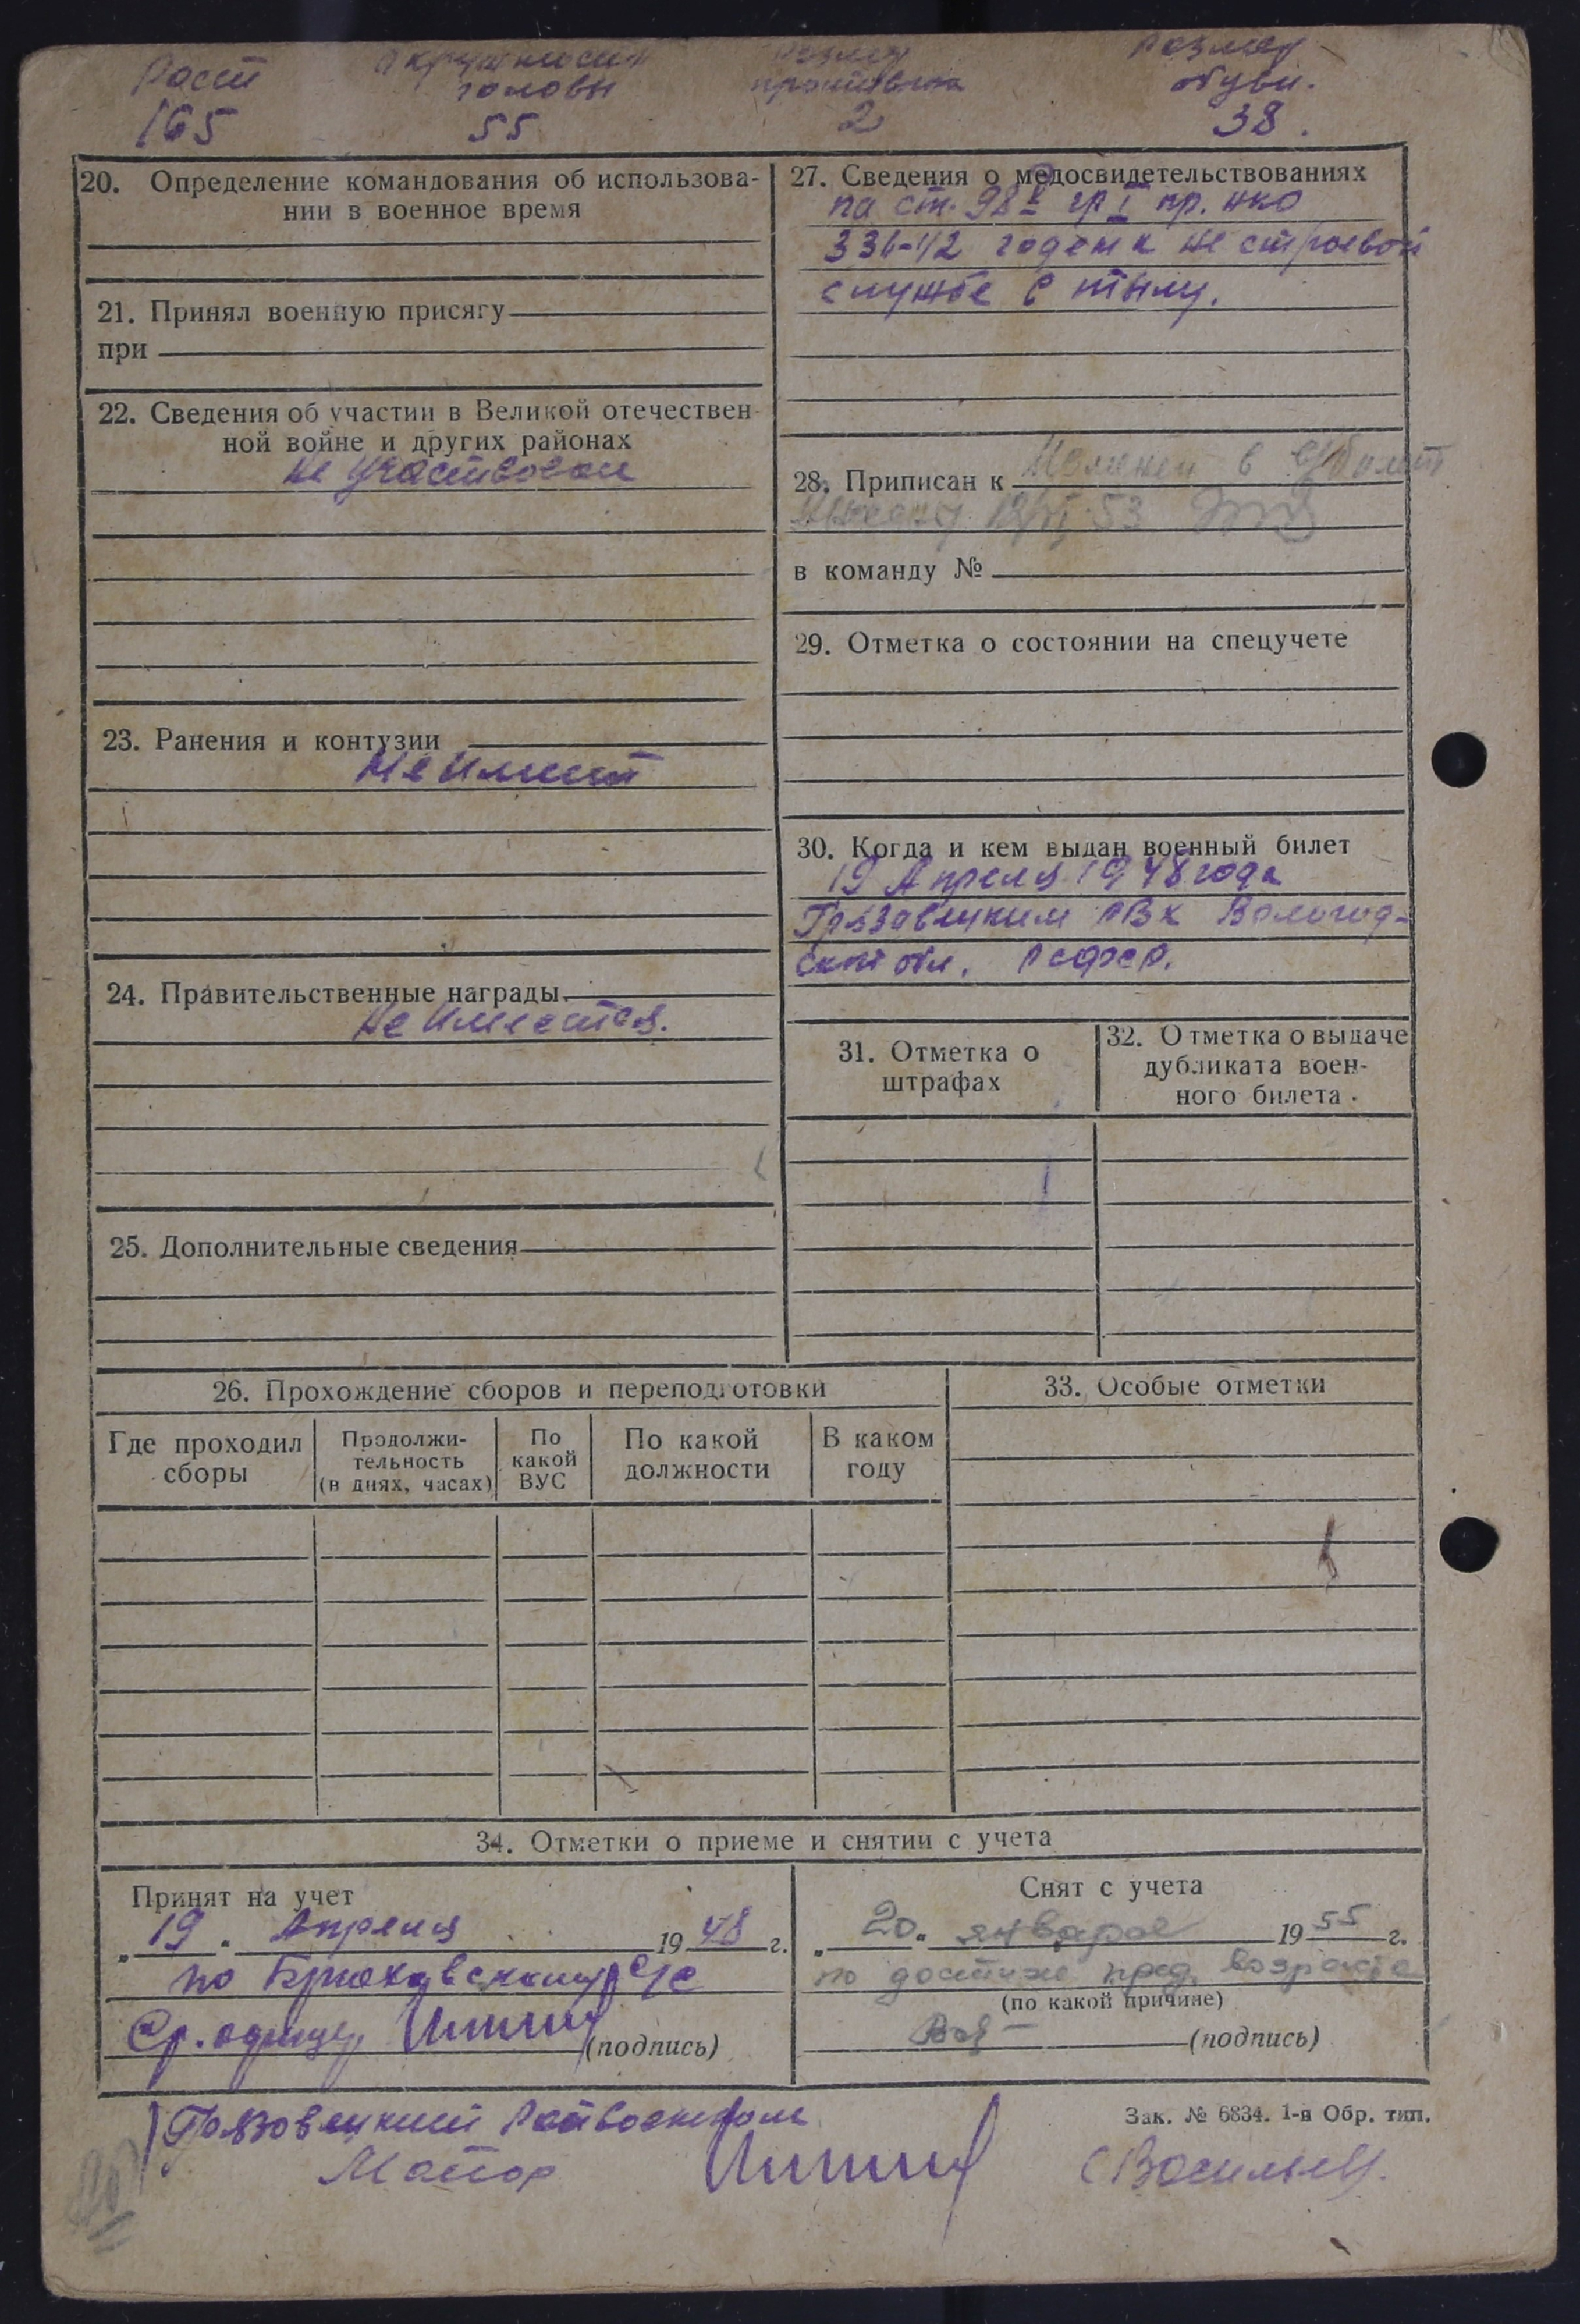 Рост
165
Окружность
головы
55
Размер
противогаза
2
Размер
обуви.
38.
20. Определение командования об использова-
нии в военное время
21. Принял военную присягу
при
22. Сведения об участии в Великой отечествен
ной войне и других районах
не участвовал
23. Ранения и контузии
Не имеет
24. Правительственные награды
Не имеется.
25. Дополнительные сведения
27. Сведения о медосвидетельствованиях
по ст. 98 гр I пр. НКО
336-42 годен к не строевой
службе в тылу.
28. Приписан к
в 53
в команду №
29. Отметка о состоянии на спецучете
30. Когда и кем выдан военный билет
19 Апреля 1948 года
Грязовецким РВК Вологод-
ской обл. РСФСР.
31. Отметка о
штрафах
32. Отметка о выдаче
дубликата воен-
ного билета
26. Прохождение сборов и переподготовки
Где проходил
сборы
Продолжи-
тельность
(в днях, часах)
По
какой
ВУС
По какой
должности
В каком
году
33. Особые отметки
34. Отметки о приеме и снятии с учета
Принят на учет
„19" Апреля 1948 г.
по с/с
(подпись)
Снят с учета
„20" января 1955 г.
по достиж пред. возраста
(по какой причине)
(подпись)
Грязовецкий Райвоенком
Майор
(Васильев).
Зак. № 6834. 1-я Обр. тип.